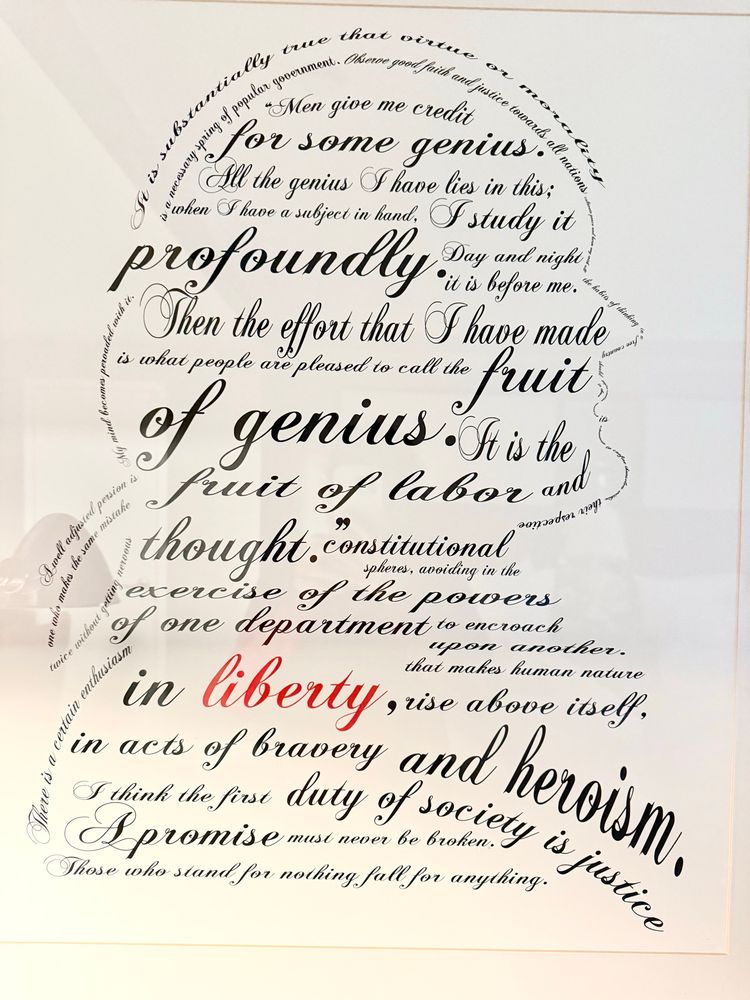 It is substantially true that virtue or morality
is a necessary spring of popular government. Observe good faith and justice towards all nations
the habits of thinking in a
free country
"Men give me credit
for some genius.
All the genius I have lies in this;
when I have a subject in hand, I study it
profoundly. Day and night
it is before me.
My mind becomes pervaded with it.
Then the effort that I have made
is what people are pleased to call the fruit
of genius. It is the
fruit of labor and
thought."
their respective
constitutional
spheres, avoiding in the
exercise of the powers
of one department to encroach
upon another.
A well adjusted person is
one who makes the same mistake
twice without getting nervous
There is a certain enthusiasm
in liberty, that makes human nature
rise above itself,
in acts of bravery and heroism.
I think the first duty of society is justice
A promise must never be broken.
Those who stand for nothing fall for anything.